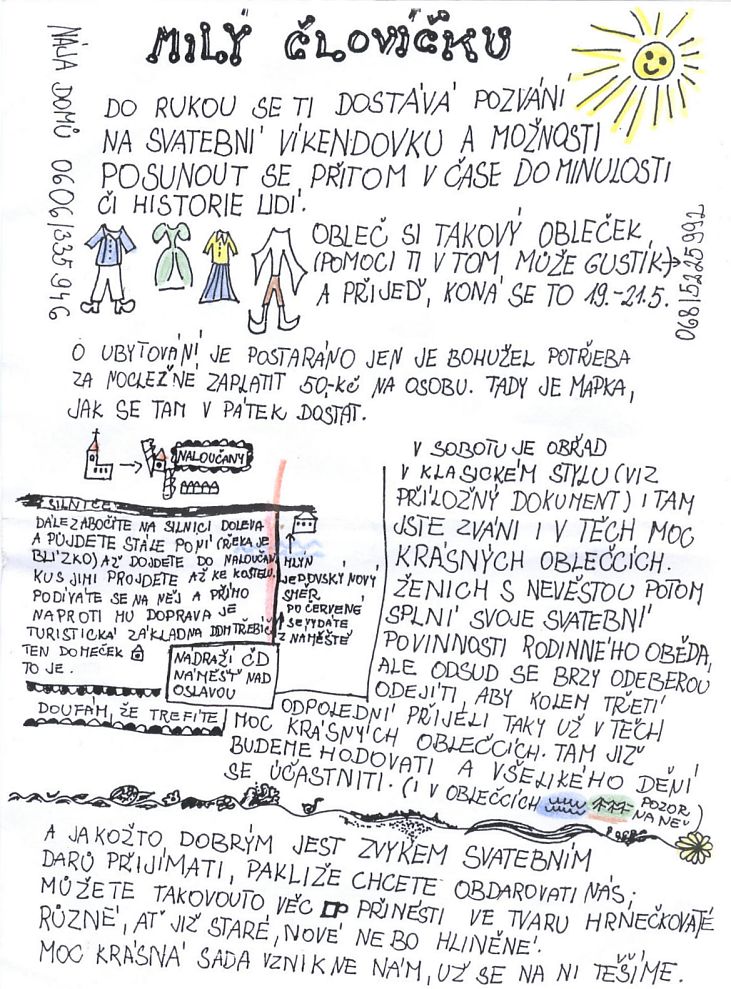 MILÝ ČLOVÍČKU
NÁJA DOMŮ 0606/335 946
DO RUKOU SE TI DOSTÁVÁ POZVÁNÍ
NA SVATEBNÍ VÍKENDOVKU A MOŽNOSTI
POSUNOUT SE PŘITOM V ČASE DO MINULOSTI
ČI HISTORIE LIDÍ.
OBLEČ SI TAKOVÝ OBLEČEK,
(POMOCI TI V TOM MŮŽE GUSTÍK)→
A PŘIJEĎ, KONÁ SE TO 19.-21.5.
068/5225 992
O UBYTOVÁNÍ JE POSTARÁNO JEN JE BOHUŽEL POTŘEBA
ZA NOCLEŽNÉ ZAPLATIT 50,-Kč NA OSOBU. TADY JE MAPKA,
JAK SE TAM V PÁTEK DOSTAT.
NALOUČANY
SILNICE
DÁLE ZABOČÍTE NA SILNICI DOLEVA
A PŮJDETE STÁLE PO NÍ (ŘEKA JE
BLÍZKO) AŽ DOJDETE DO NALOUČAN
KUS JIMI PROJDETE AŽ KE KOSTELU.
PODÍVÁTE SE NA NĚJ A PŘÍMO
NAPROTI MU DOPRAVA JE
TURISTICKÁ ZÁKLADNA DDM TŘEBÍČ
TEN DOMEČEK
TO JE.
MLÝN
JEDOVSKÝ NOVÝ
SMĚR
PO ČERVENÉ
SE VYDÁTE
Z NÁMĚŠTĚ
NÁDRAŽÍ ČD
NÁMĚŠŤ NAD
OSLAVOU
DOUFÁM, ŽE TREFÍTE
V SOBOTU JE OBŘAD
V KLASICKÉM STYLU (VIZ
PŘÍLOŽNÝ DOKUMENT) I TAM
JSTE ZVÁNI I V TĚCH MOC
KRÁSNÝCH OBLEČCÍCH.
ŽENICH S NEVĚSTOU POTOM
SPLNÍ SVOJE SVATEBNÍ
POVINNOSTI RODINNÉHO OBĚDA,
ALE ODSUD SE BRZY ODEBEROU
ODEJÍTI, ABY KOLEM TŘETÍ
ODPOLEDNÍ PŘIJELI TAKY UŽ V TĚCH
MOC KRÁSNÝCH OBLEČCÍCH. TAM JIŽ
BUDEME HODOVATI A VŠELIKÉHO DĚNÍ
SE ÚČASTNITI. (I V OBLEČCÍCH POZOR
NA NĚ)
A JAKOŽTO DOBRÝM JEST ZVYKEM SVATEBNÍM
DARŮ PŘIJÍMATI, PAKLIŽE CHCETE OBDAROVATI NÁS;
MŮŽETE TAKOVOUTO VĚC PŘINÉSTI VE TVARU HRNEČKOVATÉ
RŮZNÉ, AŤ JIŽ STARÉ, NOVÉ NEBO HLINĚNÉ.
MOC KRÁSNÁ SADA VZNIKNE NÁM, UŽ SE NA NI TĚŠÍME.